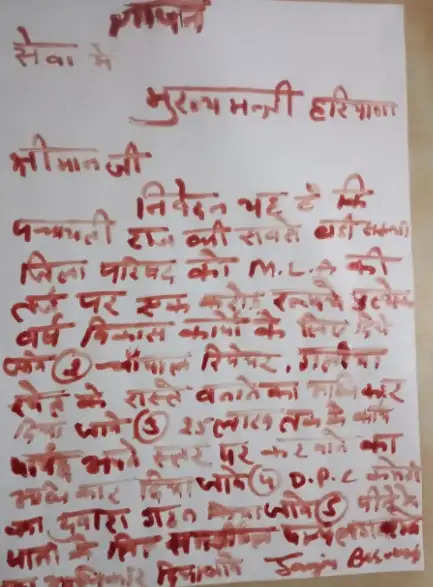 ज्ञापन
सेवा में
मुख्य मन्त्री हरियाणा
श्री मान जी
निवेदन यह है कि
पन्चायती राज की सबसे बडी संस्था
जिला परिषद को M.L.A की
तर्ज पर एक करोड रूपये प्रत्येक
वर्ष विकास कार्यो के लिए दिये
जाये (2) चौपाल रिपेयर, गलीया
खेत के रास्ते बनाने का अधिकार
दिया जाये (3) 25 लाख तक के कार्य
पार्षद अपने स्तर पर करवाने का
अधिकार दिया जाये (4) D.P.C कमेटी
का दुबारा गठन किया जाये (5) पीने के
पानी के लिए
अधिकार दिया जाये